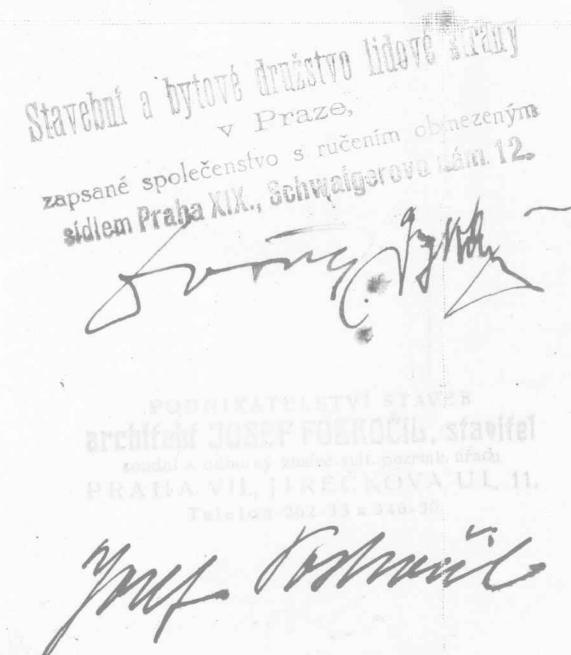 Stavební a bytové družstvo lidové strany
v Praze,
zapsané společenstvo s ručením obmezeným
sídlem Praha XIX., Schwaigerovo nám. 12.
PODNIKATELSTVÍ STAVEB
architekt JOSEF POSKOČIL, stavitel
soudní a odborný znalec
PRAHA VII, JIREČKOVA UL. 11.
Telefon
Josef Poskočil